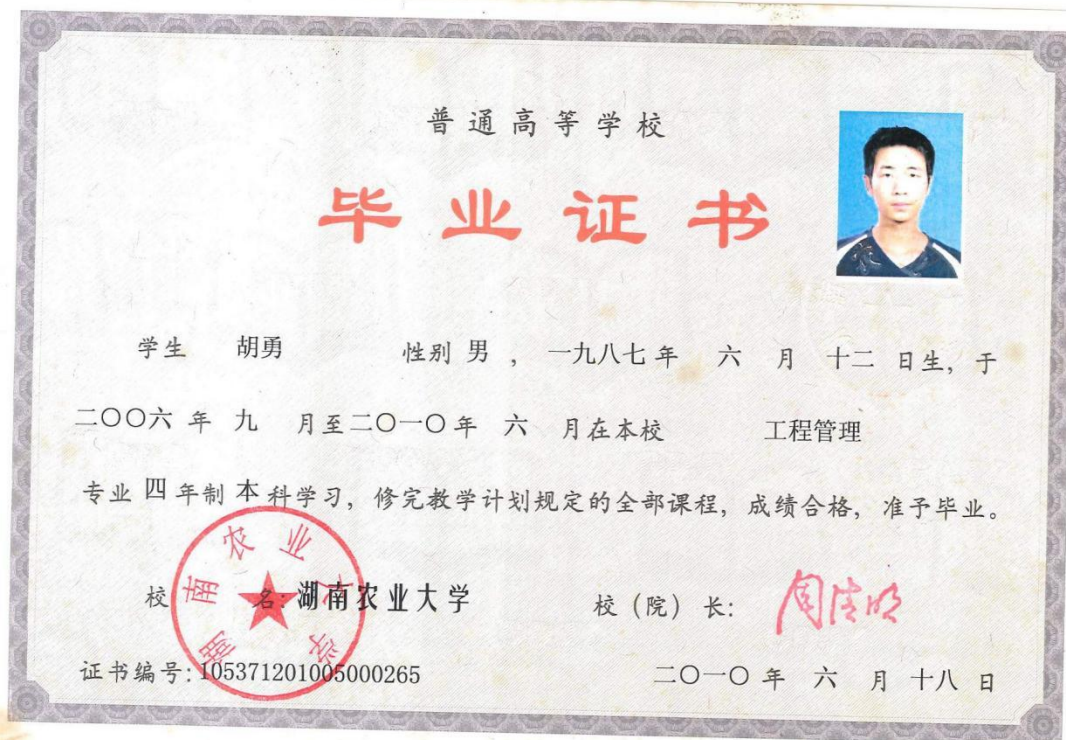 普通高等学校
毕业证书
学生 胡勇 性别 男 , 一九八七 年 六 月 十二 日生, 于
二〇〇六 年 九 月至 二〇一〇 年 六 月在本校 工程管理
专业 四 年制 本 科学习, 修完教学计划规定的全部课程, 成绩合格, 准予毕业。
校 名: 湖南农业大学 校（院）长: 周清明
湖南农业大学
证书编号: 105371201005000265 二〇一〇 年 六 月 十八 日